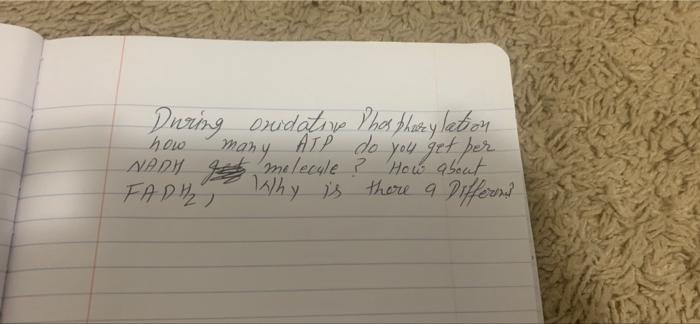 During oxidative Phosphorylation
how many ATP do you get per
NADH molecule? How about
FADH2, Why is there a Different?